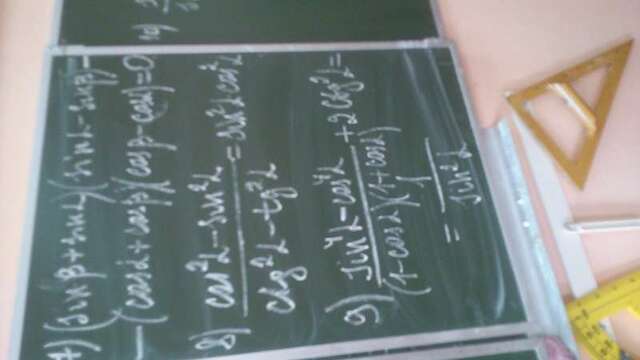 7) (sin β + sin α)(sin α − sin β) −
− (cos α + cos β)(cos β − cos α) = 0
8) (cos² α − sin² α) / (ctg² α − tg² α) = sin² α cos² α
9) (sin⁴ α − cos⁴ α) / ((1 − cos α)(1 + cos α)) + 2 ctg² α =
= 1 / sin² α
10)